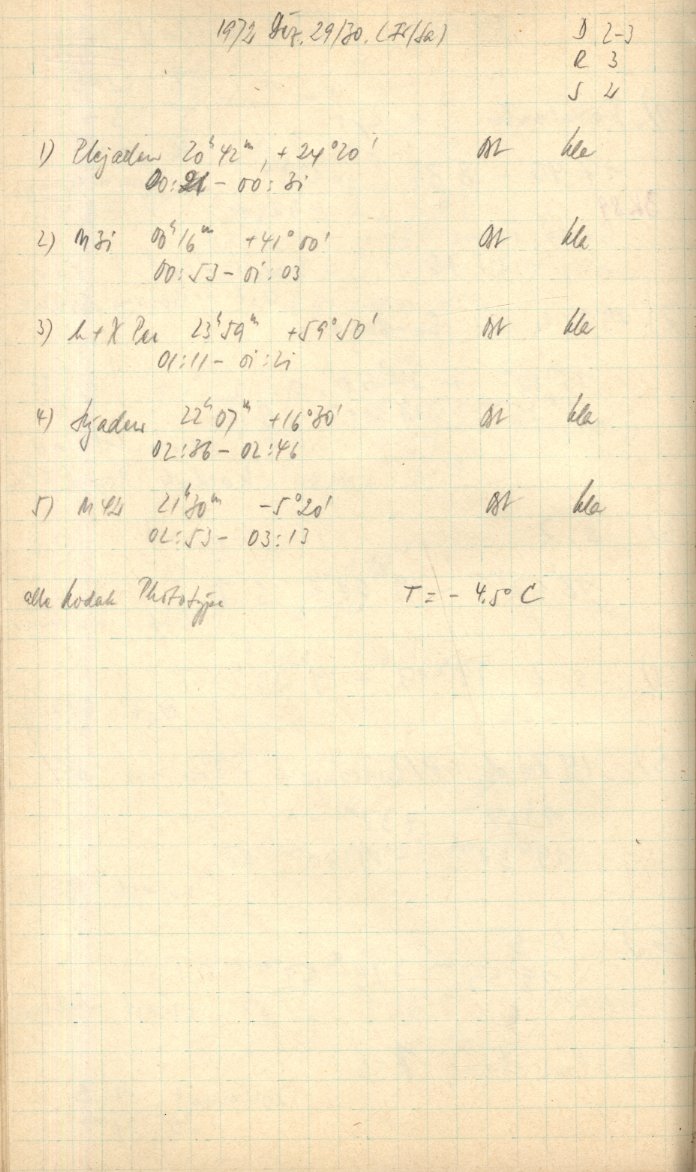 1972 Dez. 29/30. (Fr/Sa)
D 2-3
R 3
S 4
1) Plejaden 20ʰ42ᵐ, +24°20' Ost kla
00:21 - 00:31
2) M31 00ʰ16ᵐ +41°00' Ost kla
00:53 - 01:03
3) h+χ Per 23ʰ59ᵐ +59°50' Ost kla
01:11 - 01:21
4) Hyaden 22ʰ07ᵐ +16°30' Ost kla
02:36 - 02:46
5) M42 21ʰ30ᵐ -5°20' Ost kla
02:53 - 03:13
alle Kodak Phototype T = - 4.5° C